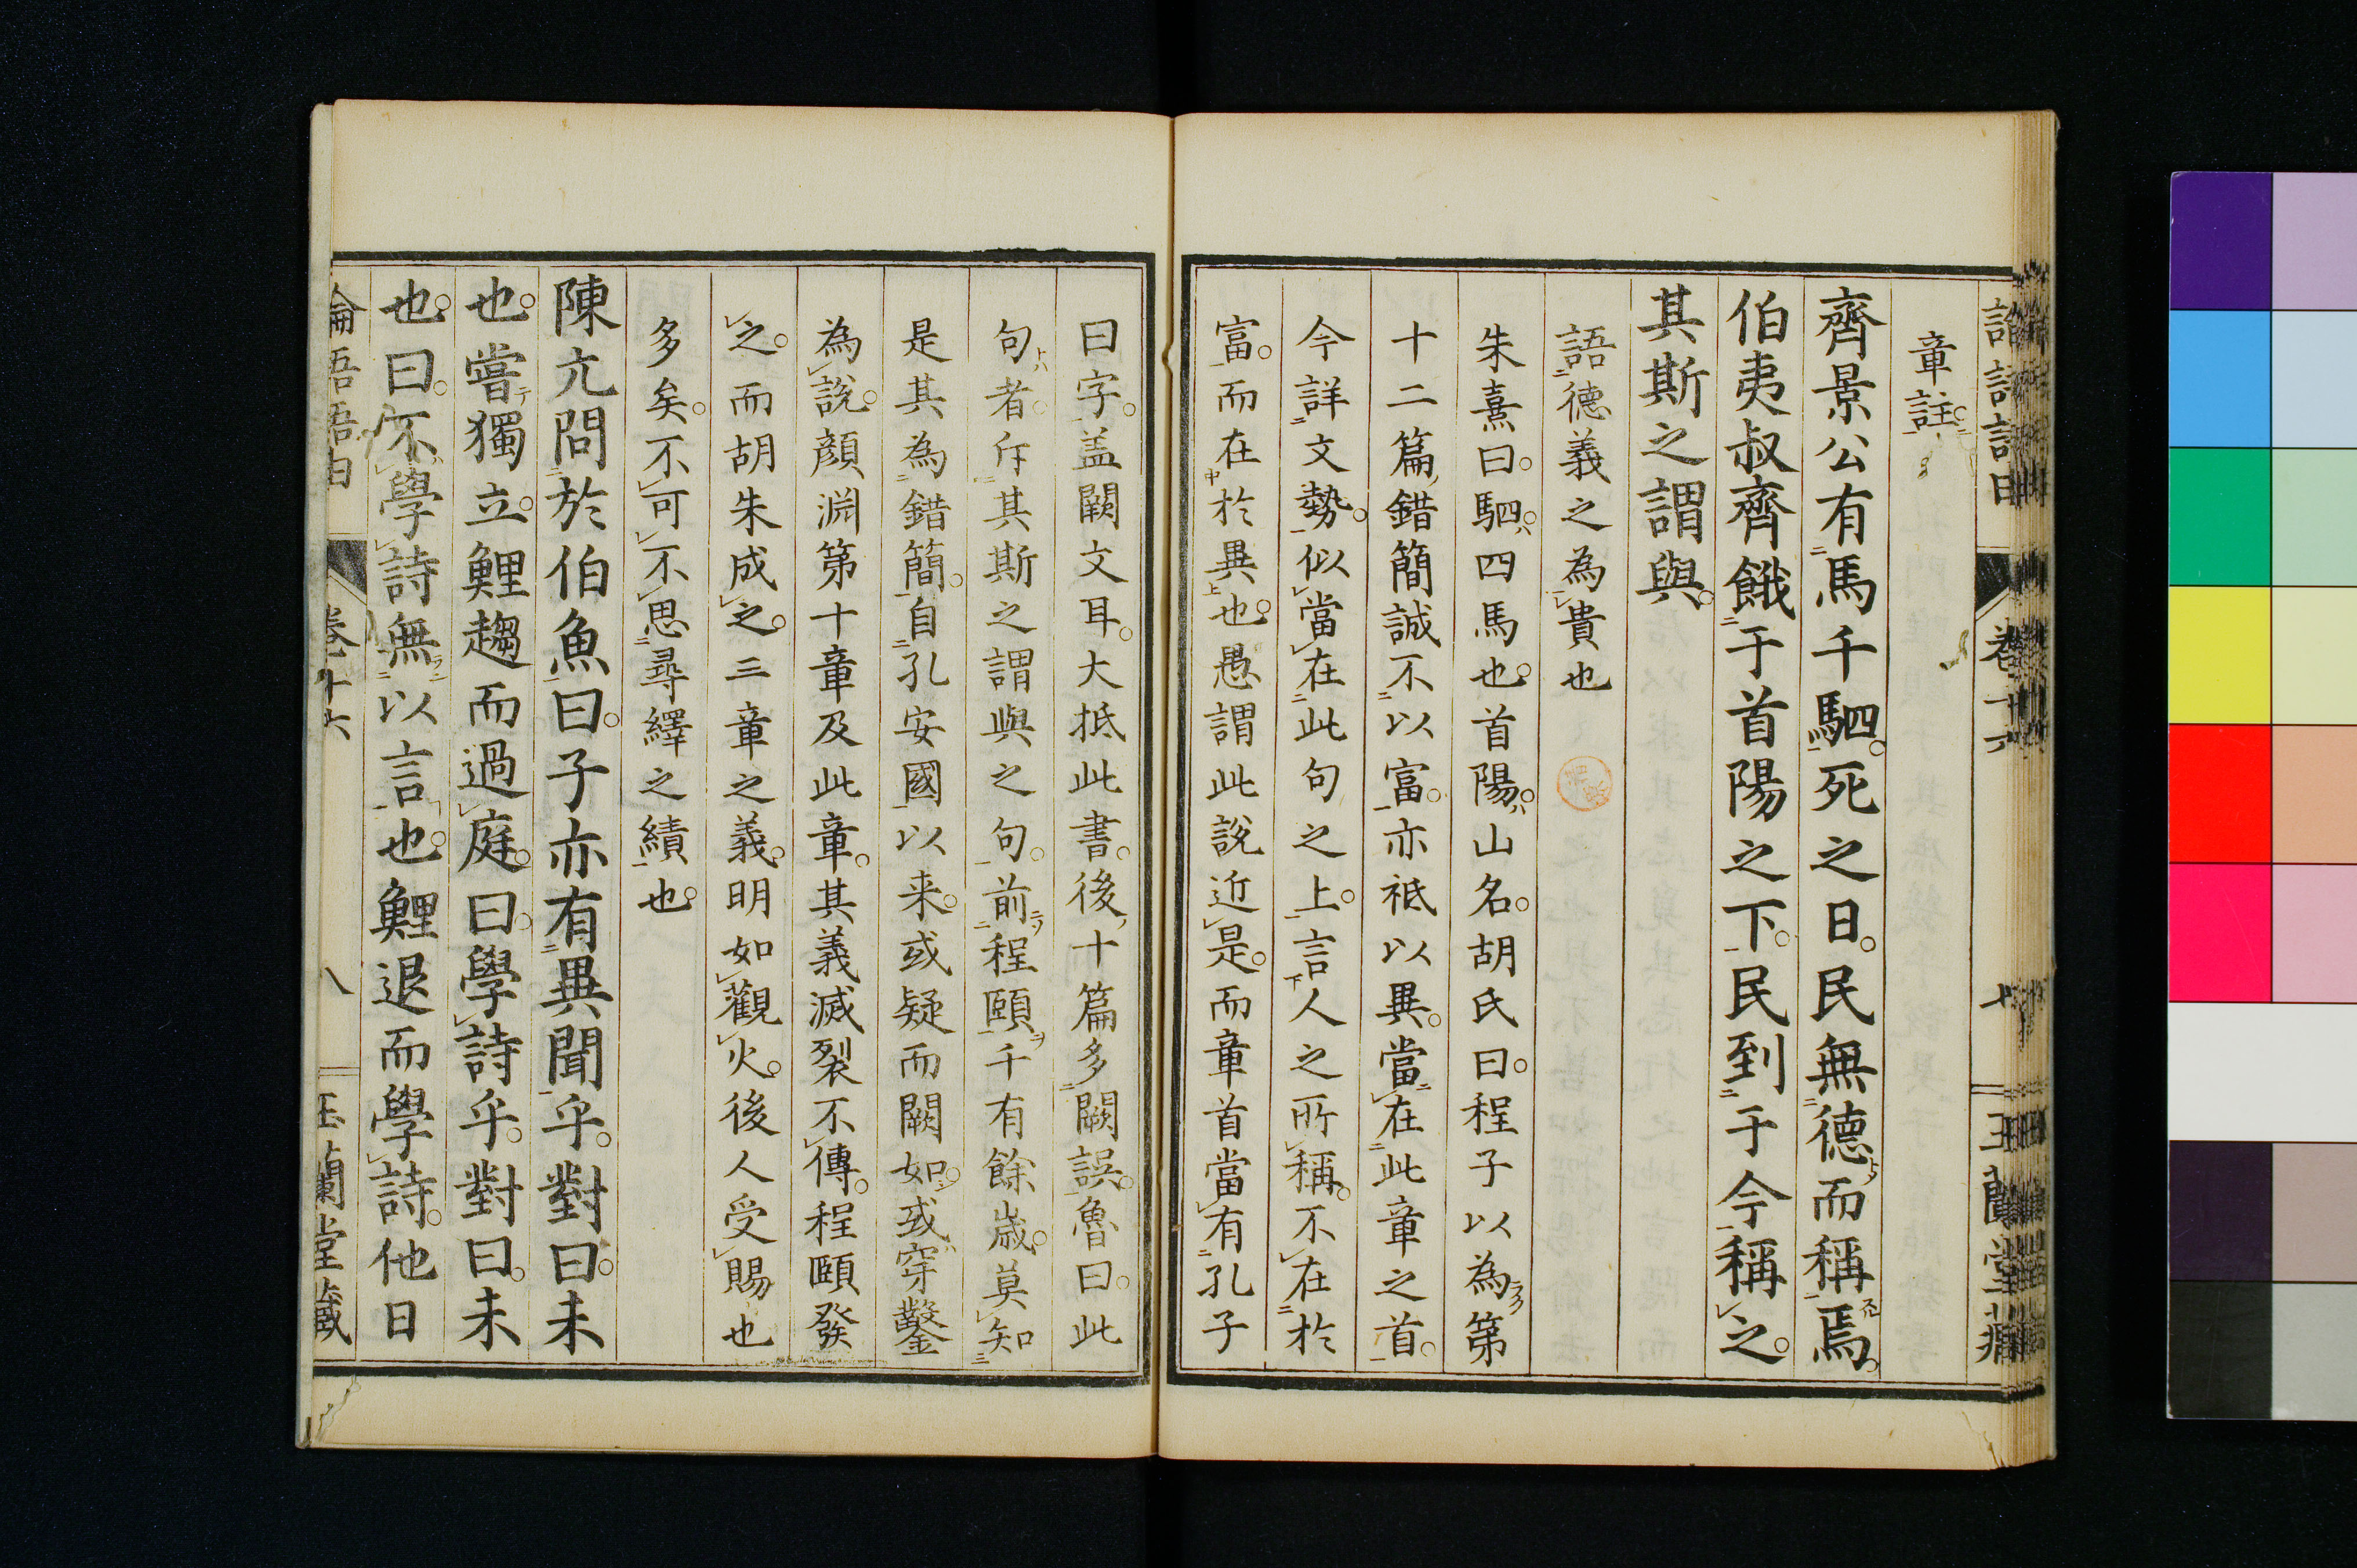 章註
齊景公有馬千駟。死之日。民無德而稱焉。
伯夷叔齊餓于首陽之下。民到于今稱之。
其斯之謂與。
語德義之為貴也
朱熹曰。駟。四馬也。首陽。山名。胡氏曰。程子以為第
十二篇錯簡誠不以富。亦祇以異。當在此章之首。
今詳文勢。似當在此句之上。言人之所稱。不在於
富。而在於異也。愚謂此說近是。而章首當有孔子
曰字。盖闕文耳。大抵此書。後十篇多闕誤。魯曰。此
句者。斥其斯之謂與之句。前程頤千有餘歲。莫知
是其為錯簡。自孔安國以来。或疑而闕如。或穿鑿
為說。顏淵第十章及此章。其義滅裂不傳。程頤發
之。而胡朱成之。三章之義。明如觀火。後人受賜也
多矣。不可不思尋繹之績也。
陳亢問於伯魚曰。子亦有異聞乎。對曰。未
也。嘗獨立。鯉趨而過庭。曰。學詩乎。對曰。未
也。曰。不學詩無以言也。鯉退而學詩。他日
論語語由 卷十六 八 玉蘭堂藏